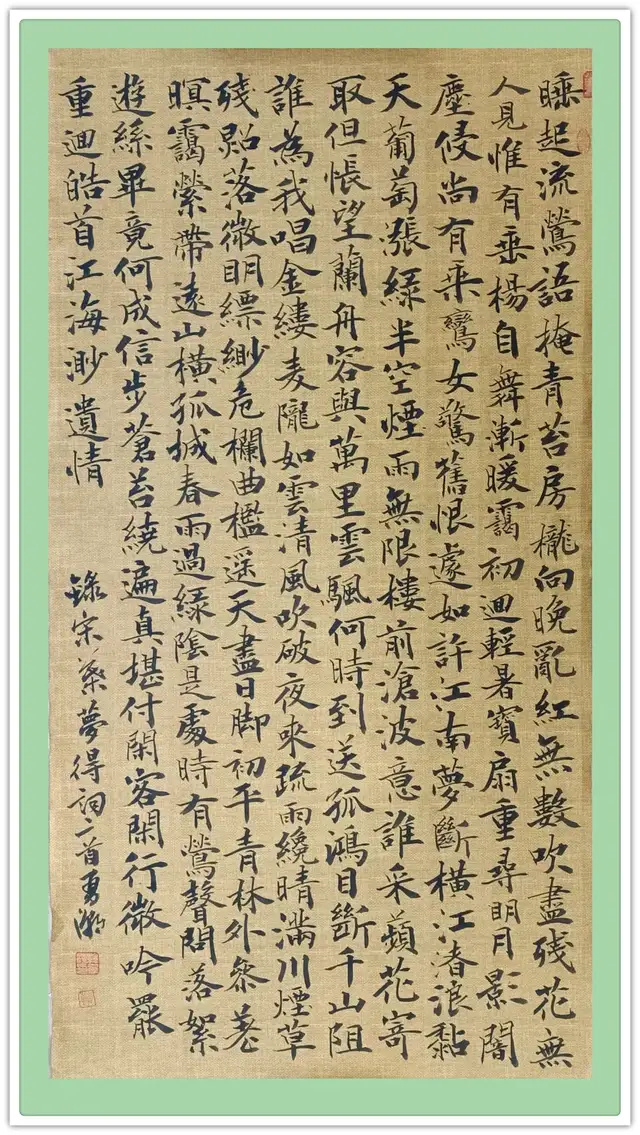 睡起流鶯語掩青苔房櫳向晚亂紅無數吹盡殘花無
人見惟有垂楊自舞漸暖靄初迴輕暑寶扇重尋明月影闇
塵侵尚有乘鸞女驚舊恨遽如許江南夢斷橫江渚浪黏
天葡萄漲綠半空煙雨無限樓前滄波意誰采蘋花寄
取但悵望蘭舟容與萬里雲颿何時到送孤鴻目斷千山阻
誰為我唱金縷麦隴如雲清風吹破夜來疏雨纔晴滿川煙草
殘照落微明縹緲危欄曲檻遥天盡日脚初平青林外參差
暝靄縈帶遠山橫孤城春雨過綠陰是處時有鶯聲問落絮
遊絲畢竟何成信步蒼苔繞遍真堪付閑客閑行微吟罷
重迴皓首江海渺遺情
錄宋葉夢得詞二首勇